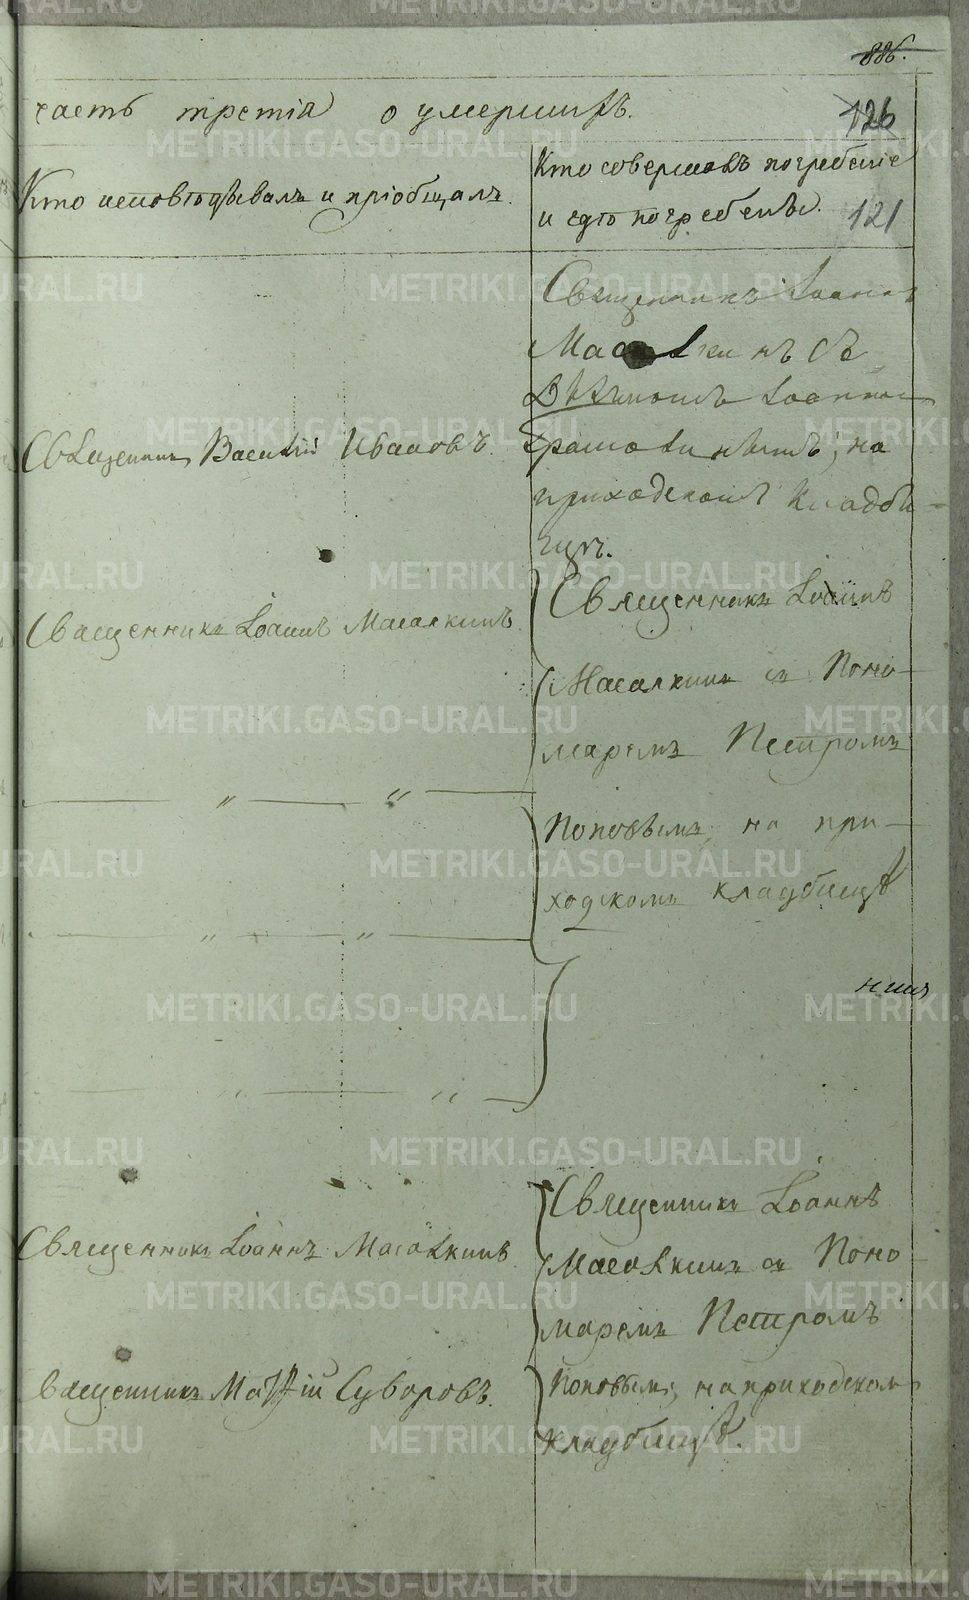 886.
часть третія о умершихъ.
126
Кто исповѣдывалъ и пріобщалъ.
Кто совершалъ погребеніе
и гдѣ погребены.
121
Священникъ Іоаннъ
Масалкинъ съ
Діакономъ Іоанномъ
на
приходскомъ кладби-
щѣ.
Священникъ Василій Ивановъ.
Священникъ Іоаннъ Масалкинъ
Священникъ Іоаннъ
Масалкинъ съ Поно-
маремъ Петромъ
Поповымъ, на при-
ходскомъ кладбищѣ
Священникъ Іоаннъ Масалкинъ
Священникъ Іоаннъ
Масалкинъ съ Поно
маремъ Петромъ
Поповымъ, на приходском
кладбищѣ.
Священникъ Матѳій Суворовъ.
METRIKI.GASO-URAL.RU